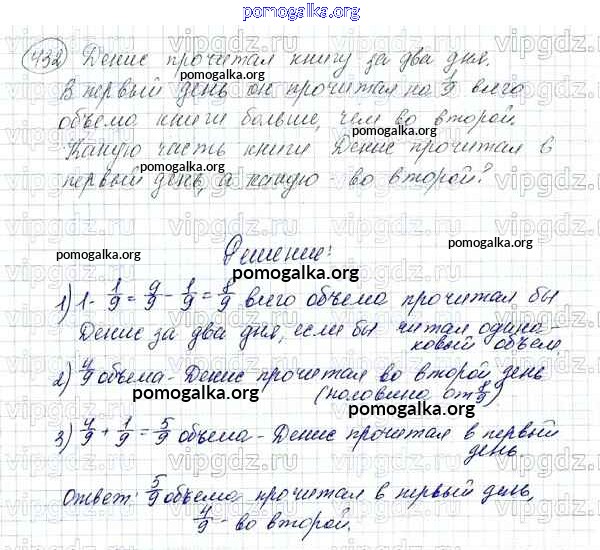 pomogalka.org
432) Денис прочитал книгу за два дня.
В первый день он прочитал на 1/9 всего
объема книги больше, чем во второй.
Какую часть книги Денис прочитал в
первый день, а какую - во второй?
Решение:
1) 1 - 1/9 = 9/9 - 1/9 = 8/9 всего объема прочитал бы
Денис за два дня, если бы читал одина-
ковый объем.
2) 4/9 объема - Денис прочитал во второй день
(половина от 8/9)
3) 4/9 + 1/9 = 5/9 объема - Денис прочитал в первый
день.
Ответ: 5/9 объема прочитал в первый день,
4/9 - во второй.